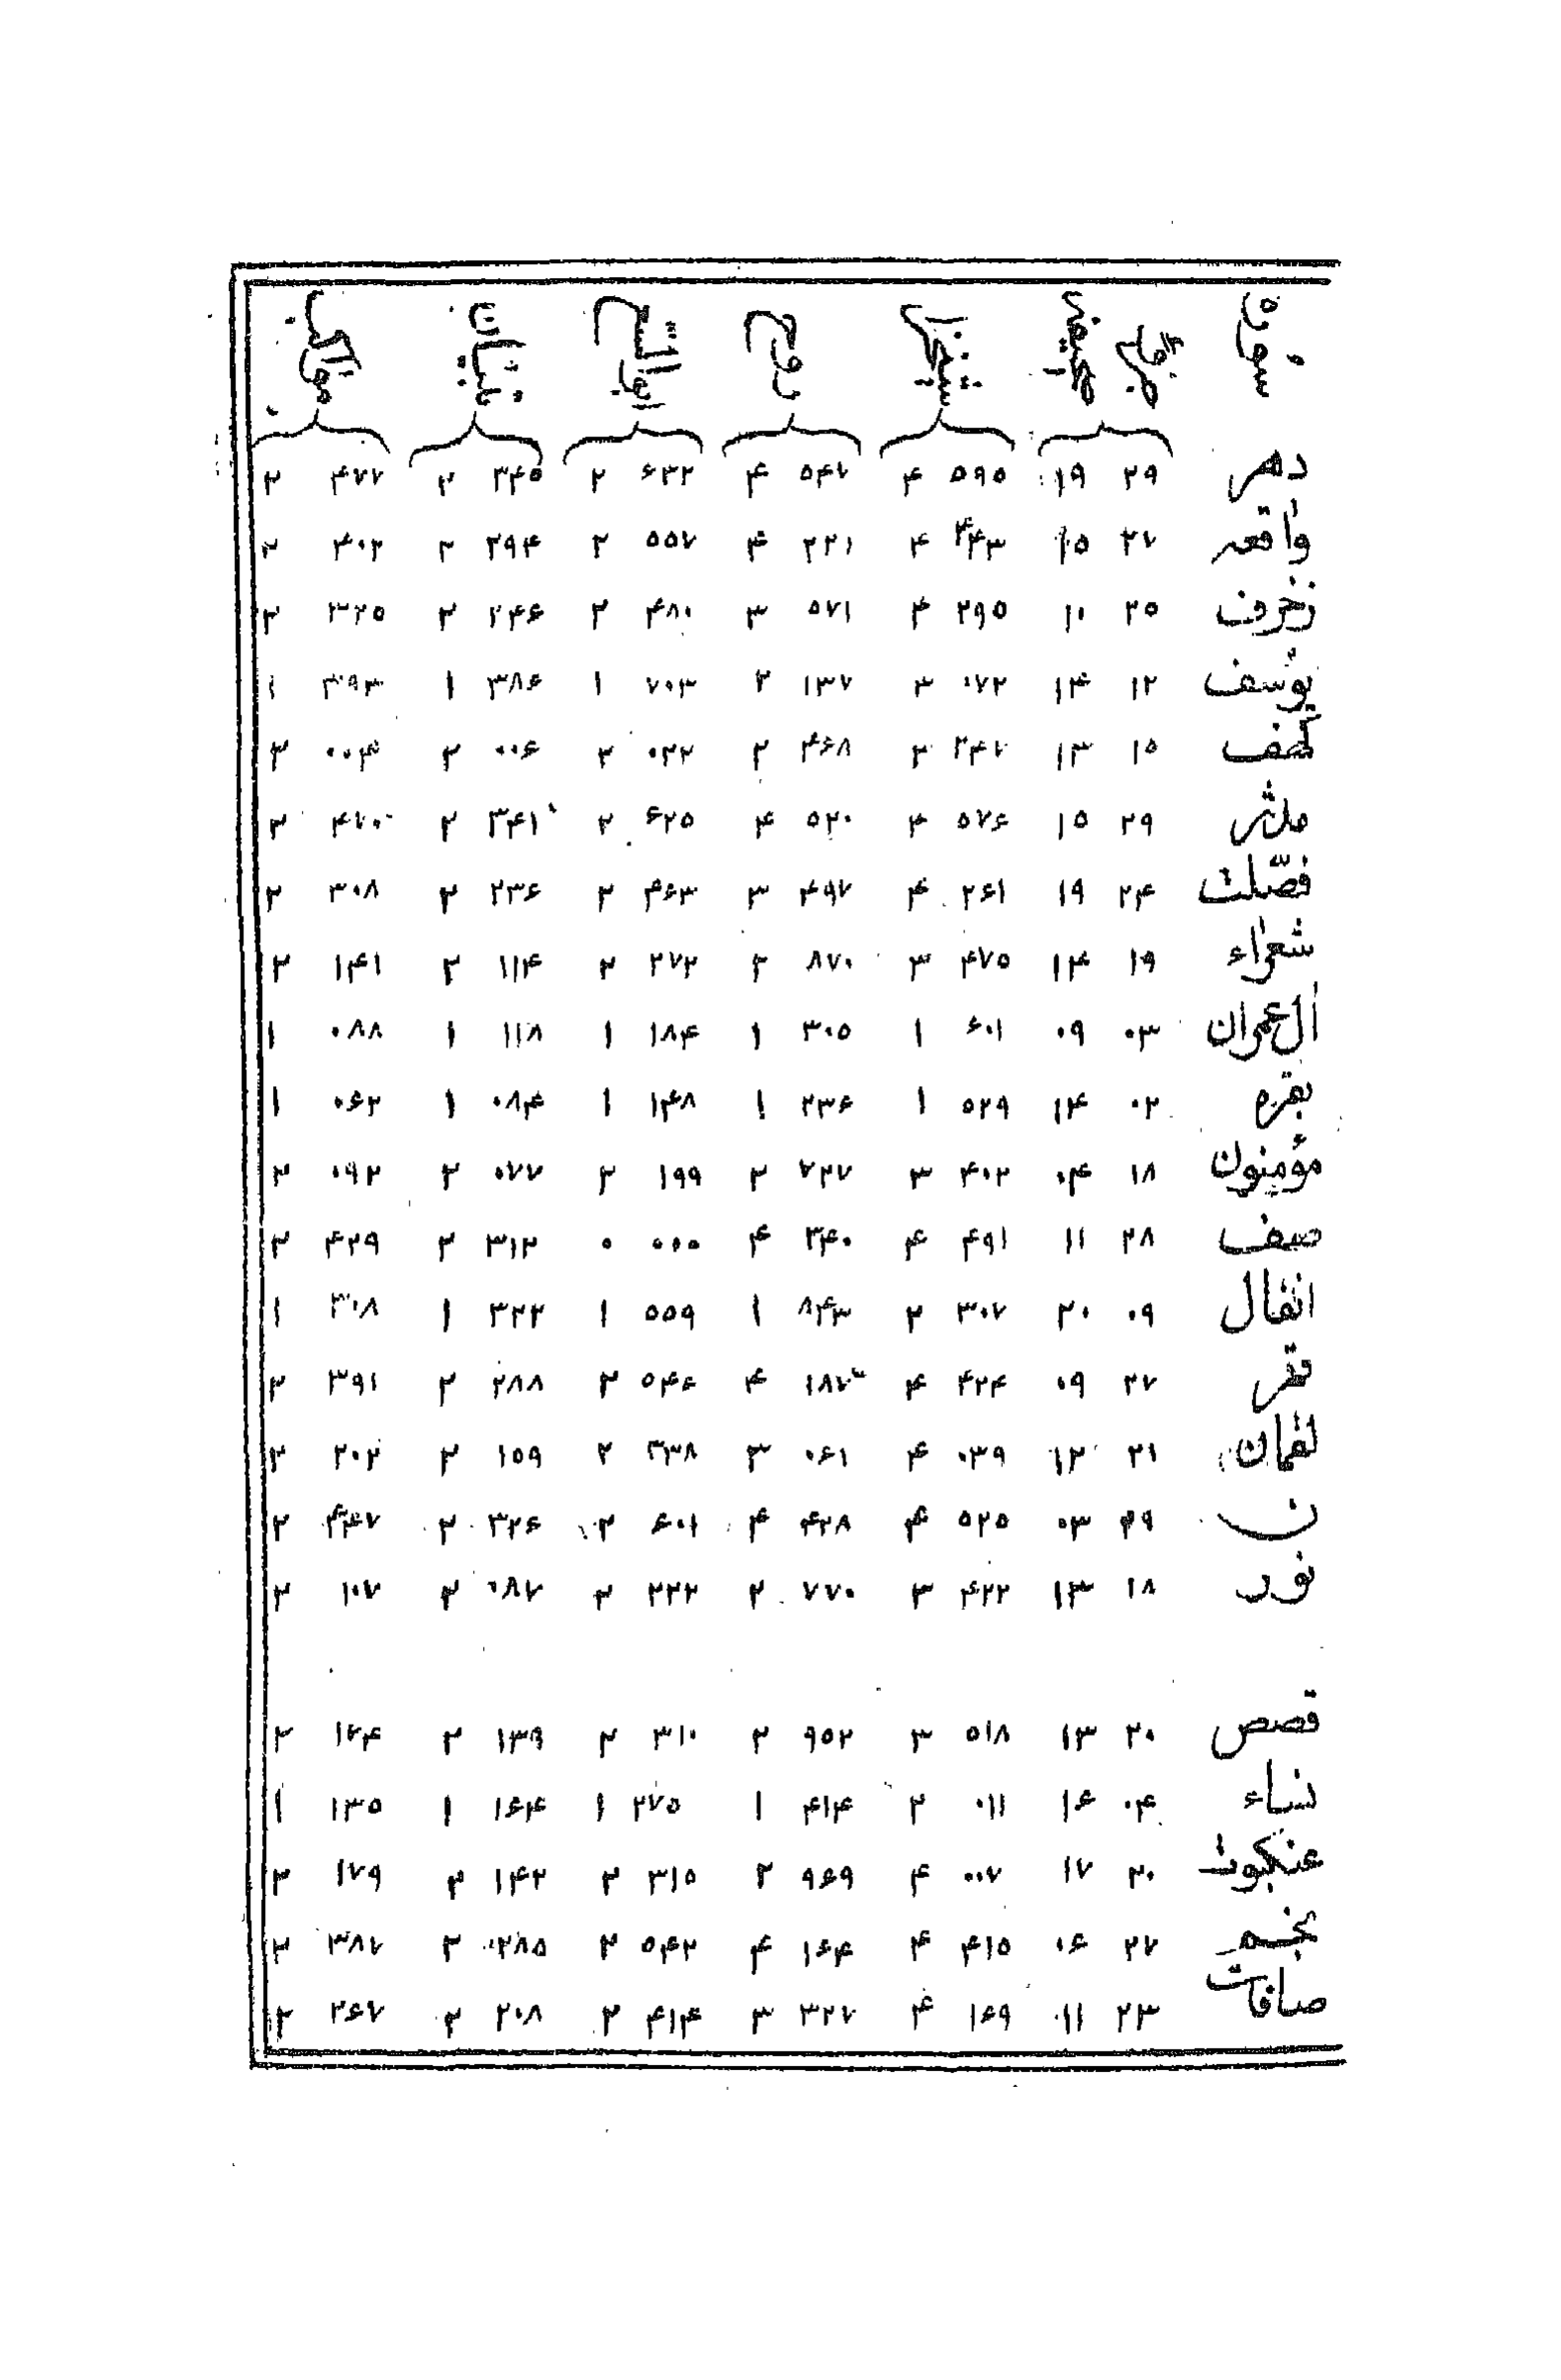 دهر ۲۹ ۱۹ ۵۹۵ ۴ ۵۴۷ ۴ ۶۳۲ ۲ ۳۴۵ ۲ ۴۷۷ ۲
واقعه ۲۷ ۱۵ ۴۴۳ ۴ ۲۲۱ ۴ ۵۵۷ ۲ ۲۹۴ ۲ ۴۰۲ ۲
زخرف ۲۵ ۱۰ ۲۹۵ ۴ ۵۷۱ ۳ ۴۸۰ ۲ ۲۴۶ ۲ ۳۲۵ ۲
یوسف ۱۲ ۱۴ ۰۷۲ ۳ ۱۳۷ ۲ ۷۰۳ ۱ ۳۸۶ ۱ ۳۹۳ ۱
کهف ۱۵ ۱۳ ۲۴۷ ۳ ۴۶۸ ۲ ۰۲۲ ۲ ۰۰۶ ۲ ۰۰۴ ۲
مدثر ۲۹ ۱۵ ۵۷۶ ۴ ۵۲۰ ۴ ۶۲۵ ۲ ۳۴۱ ۲ ۴۷۰ ۲
فصّلت ۲۴ ۱۹ ۲۶۱ ۴ ۴۹۷ ۳ ۴۶۳ ۲ ۲۳۶ ۲ ۳۰۸ ۲
شعراء ۱۹ ۱۴ ۴۷۵ ۳ ۸۷۰ ۲ ۲۷۲ ۲ ۱۱۴ ۲ ۱۴۱ ۲
ال عمران ۰۳ ۰۹ ۶۰۱ ۱ ۳۰۵ ۱ ۱۸۴ ۱ ۱۱۸ ۱ ۰۸۸ ۱
بقره ۰۲ ۱۴ ۵۲۹ ۱ ۲۳۶ ۱ ۱۴۸ ۱ ۰۸۴ ۱ ۰۶۲ ۱
مؤمنون ۱۸ ۰۴ ۴۰۲ ۳ ۷۲۷ ۲ ۱۹۹ ۲ ۰۷۷ ۲ ۰۹۲ ۲
صف ۲۸ ۱۱ ۴۹۱ ۴ ۳۴۰ ۴ ۰۰۰ ۰ ۳۱۲ ۲ ۴۲۹ ۲
انفال ۰۹ ۲۰ ۳۰۷ ۲ ۸۴۳ ۱ ۵۵۹ ۱ ۳۲۲ ۱ ۳۰۸ ۱
قمر ۲۷ ۰۹ ۴۲۴ ۴ ۱۸۷ ۴ ۵۴۶ ۲ ۲۸۸ ۲ ۳۹۱ ۲
لقمان ۲۱ ۱۲ ۰۳۹ ۴ ۰۶۱ ۳ ۳۳۸ ۲ ۱۵۹ ۲ ۲۰۲ ۲
ن ۲۹ ۰۳ ۵۲۵ ۴ ۴۲۸ ۴ ۶۰۱ ۲ ۳۲۶ ۲ ۴۴۷ ۲
نور ۱۸ ۱۳ ۴۲۲ ۳ ۷۷۰ ۲ ۲۲۲ ۲ ۰۸۷ ۲ ۱۰۷ ۲
قصص ۲۰ ۱۳ ۵۱۸ ۳ ۹۵۲ ۲ ۳۱۰ ۲ ۱۳۹ ۲ ۱۷۴ ۲
نساء ۰۴ ۱۶ ۰۱۱ ۲ ۴۱۴ ۱ ۲۷۵ ۱ ۱۶۴ ۱ ۱۳۵ ۱
عنکبوت ۲۰ ۱۷ ۰۰۷ ۴ ۹۶۹ ۲ ۳۱۵ ۲ ۱۴۲ ۲ ۱۷۹ ۲
نجم ۲۷ ۰۶ ۴۱۵ ۴ ۱۶۴ ۴ ۵۴۲ ۲ ۲۸۵ ۲ ۳۸۷ ۲
صافات ۲۳ ۱۱ ۱۶۹ ۴ ۳۲۷ ۳ ۴۱۴ ۲ ۲۰۸ ۲ ۲۶۷ ۲